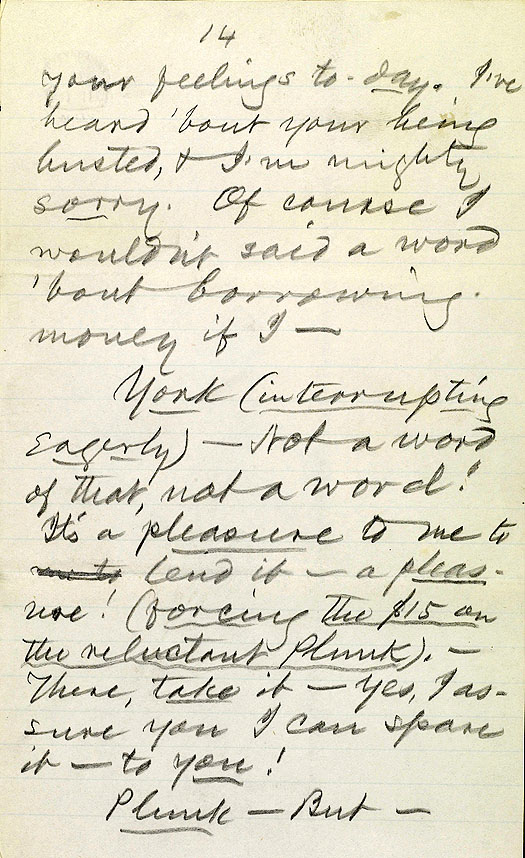 14
your feelings to-day. I've
heard 'bout your being
busted, & I'm mighty
sorry. Of course I
wouldn't said a word
'bout borrowing
money if I —
York (interrupting
eagerly) — Not a word
of that, not a word!
It's a pleasure to me to
lend it — a pleas-
ure! (forcing the $15 on
the reluctant Plunk). —
There, take it — Yes, I as-
sure you I can spare
it — to you!
Plunk — But —